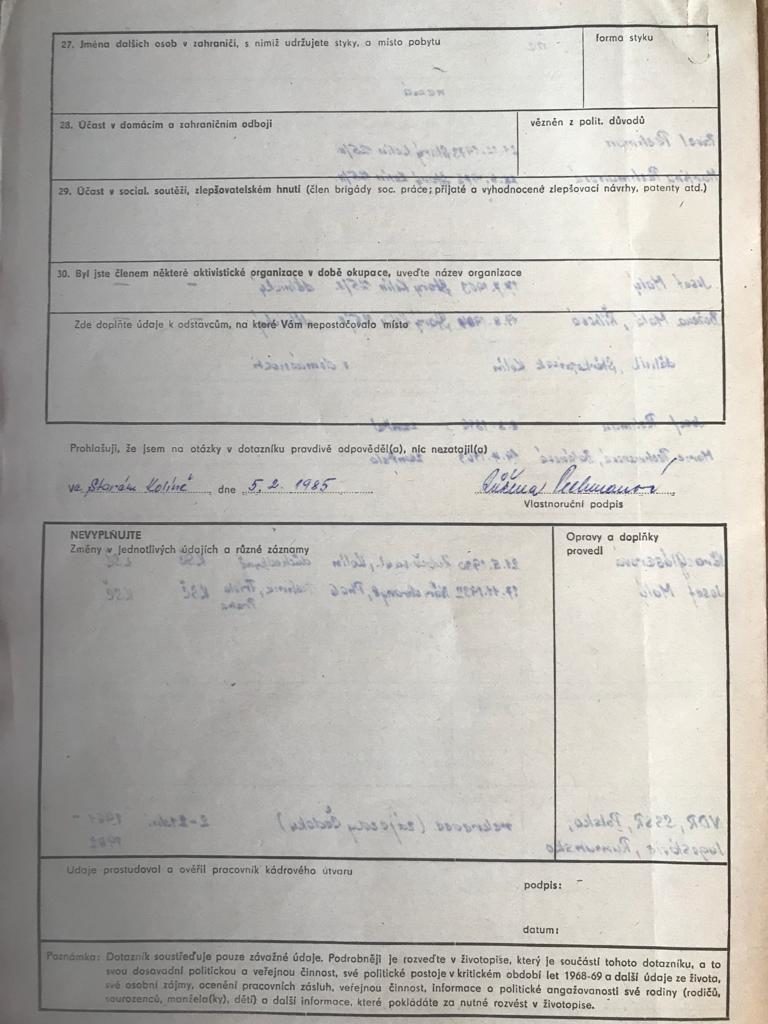 27. Jména dalších osob v zahraničí, s nimiž udržujete styky, a místo pobytu
forma styku
28. Účast v domácím a zahraničním odboji
vězněn z polit. důvodů
29. Účast v social. soutěži, zlepšovatelském hnutí (člen brigády soc. práce; přijaté a vyhodnocené zlepšovací návrhy, patenty atd.)
30. Byl jste členem některé aktivistické organizace v době okupace, uveďte název organizace
Zde doplňte údaje k odstavcům, na které Vám nepostačovalo místo
Prohlašuji, že jsem na otázky v dotazníku pravdivě odpověděl(a), nic nezatajil(a)
ve Starém Kolíně dne 5. 2. 1985
Vlastnoruční podpis
NEVYPLŇUJTE
Změny v jednotlivých údajích a různé záznamy
Opravy a doplňky
provedl
Údaje prostudoval a ověřil pracovník kádrového útvaru
podpis:
datum:
Poznámka: Dotazník soustřeďuje pouze závažné údaje. Podrobněji je rozveďte v životopise, který je součástí tohoto dotazníku, a to
svou dosavadní politickou a veřejnou činnost, své politické postoje v kritickém období let 1968-69 a další údaje ze života,
své osobní zájmy, ocenění pracovních zásluh, veřejnou činnost, informace o politické angažovanosti své rodiny (rodičů,
sourozenců, manžela(ky), dětí) a další informace, které pokládáte za nutné rozvést v životopise.